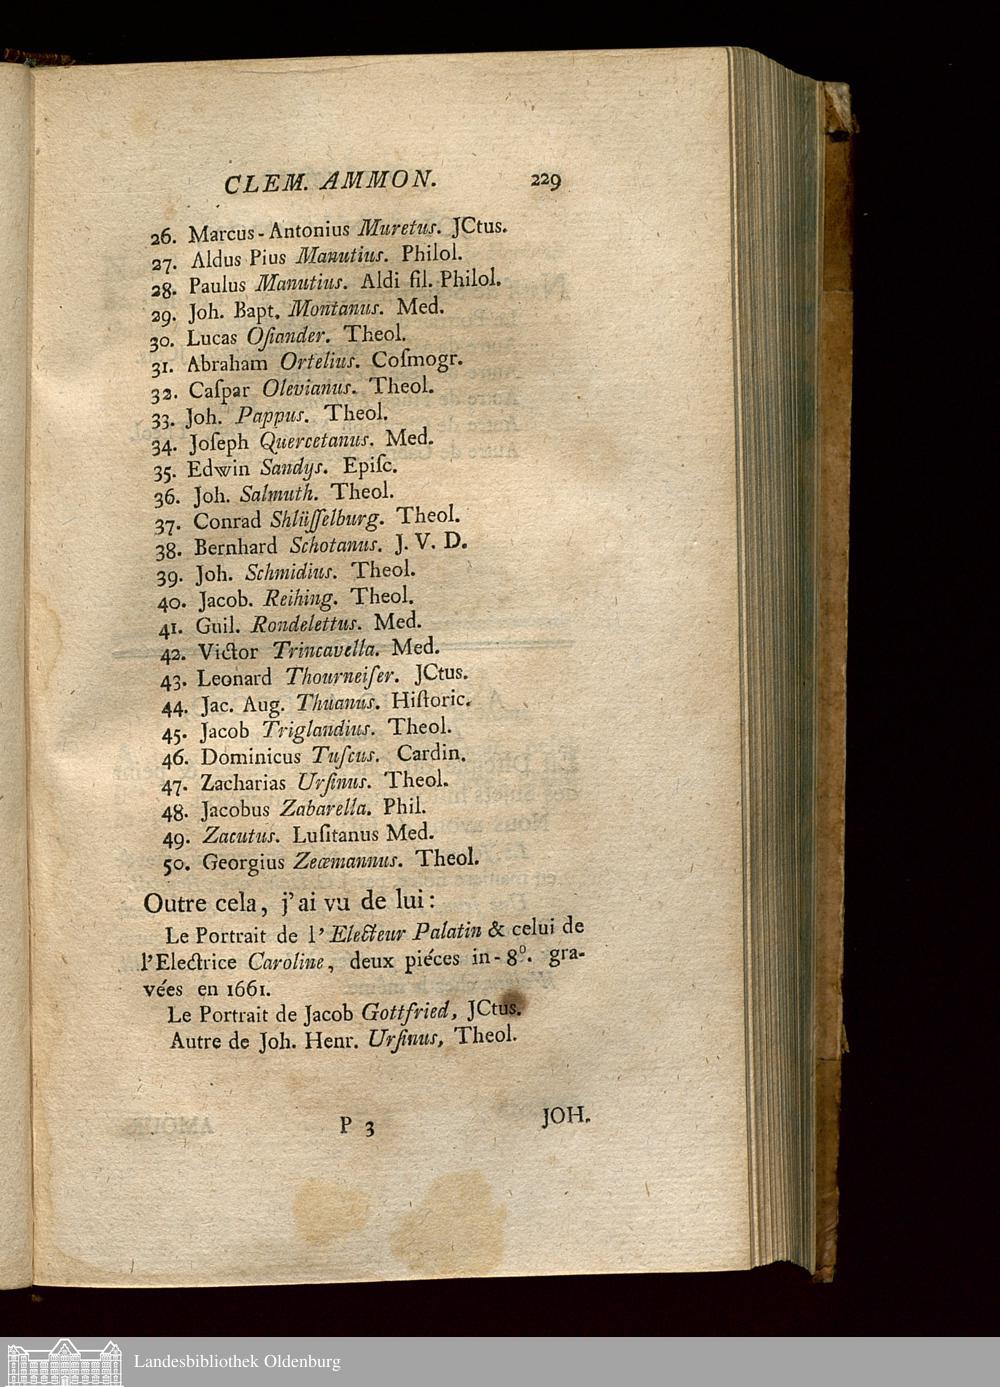 CLEM. AMMON. 229
26. Marcus-Antonius Muretus. JCtus.
27. Aldus Pius Manutius. Philol.
28. Paulus Manutius. Aldi fil. Philol.
29. Joh. Bapt. Montanus. Med.
30. Lucas Oſiander. Theol.
31. Abraham Ortelius. Coſmogr.
32. Caſpar Olevianus. Theol.
33. Joh. Pappus. Theol.
34. Joſeph Quercetanus. Med.
35. Edwin Sandys. Epiſc.
36. Joh. Salmuth. Theol.
37. Conrad Shlüſſelburg. Theol.
38. Bernhard Schotanus. J. V. D.
39. Joh. Schmidius. Theol.
40. Jacob. Reihing. Theol.
41. Guil. Rondelettus. Med.
42. Victor Trincavella. Med.
43. Leonard Thourneiſer. JCtus.
44. Jac. Aug. Thuanus. Hiſtoric.
45. Jacob Triglandius. Theol.
46. Dominicus Tuſcus. Cardin.
47. Zacharias Urſinus. Theol.
48. Jacobus Zabarella. Phil.
49. Zacutus. Luſitanus Med.
50. Georgius Zeæmannus. Theol.
Outre cela, j'ai vu de lui:
Le Portrait de l'Electeur Palatin & celui de
l'Electrice Caroline, deux piéces in-8°. gra-
vées en 1661.
Le Portrait de Jacob Gottfried, JCtus.
Autre de Joh. Henr. Urſinus, Theol.
P 3 JOH.
Landesbibliothek Oldenburg